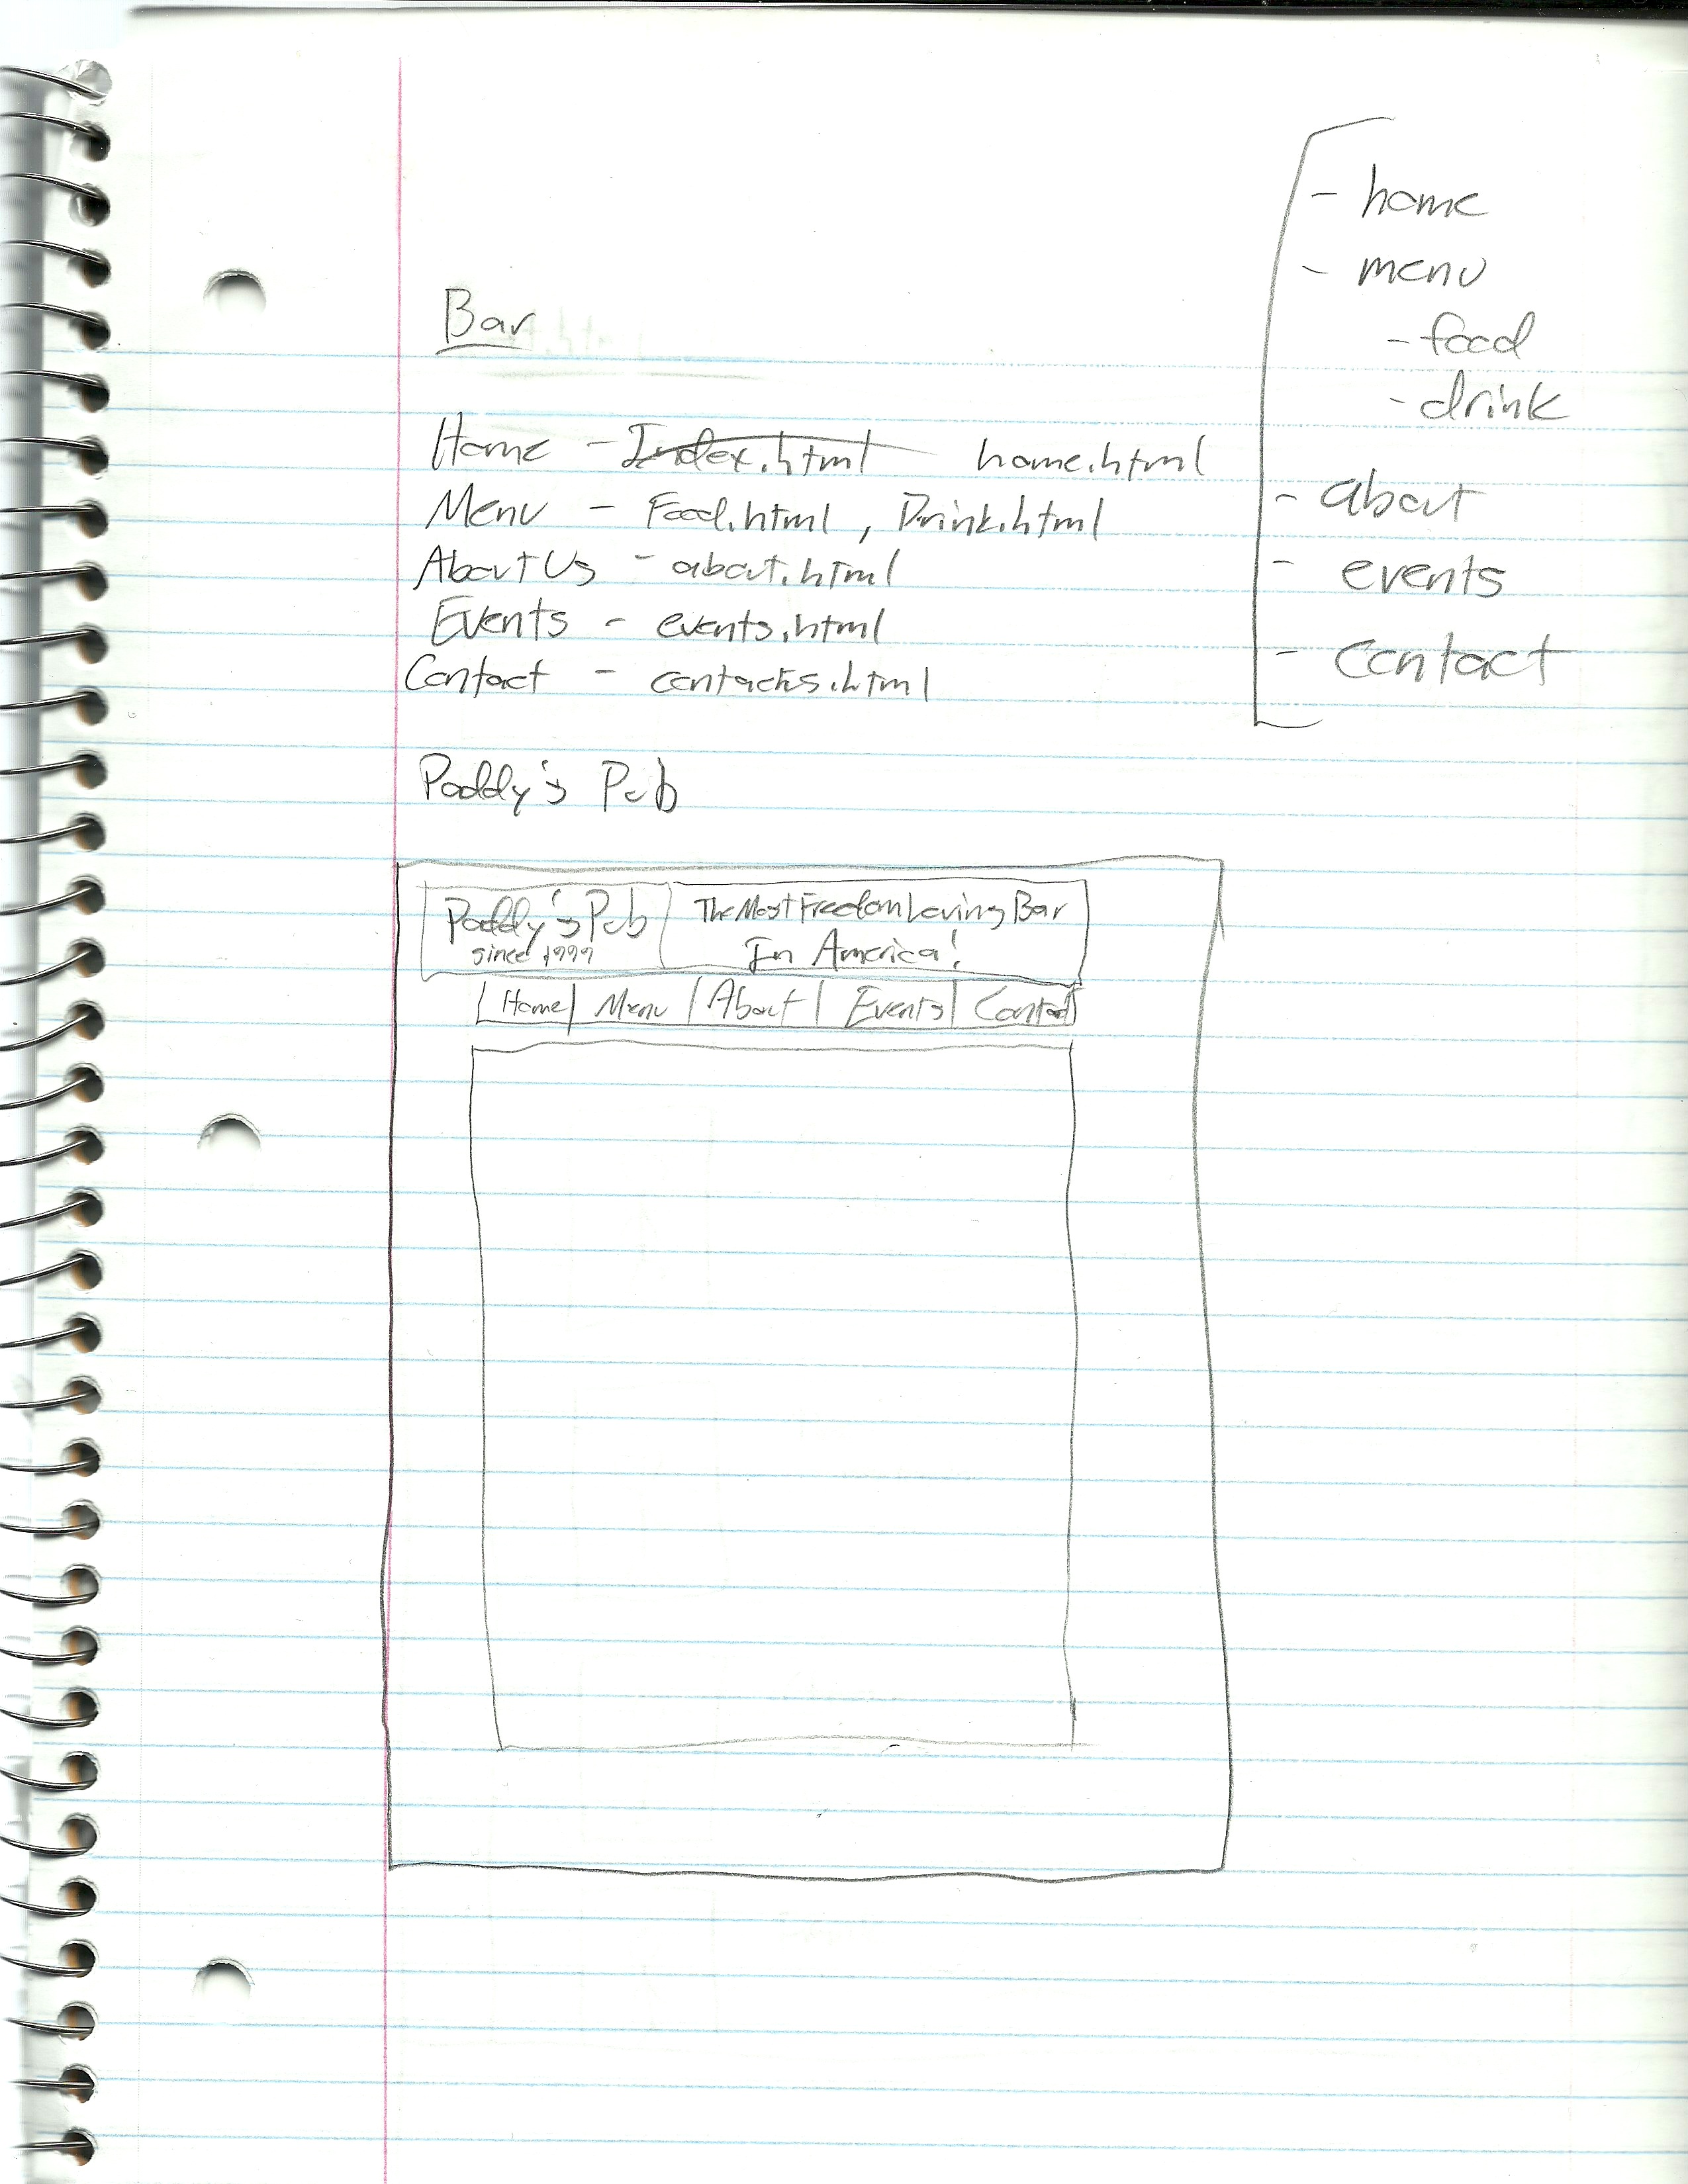 Bar
Home - Index.html home.html
Menu - Food.html, Drink.html
About Us - about.html
Events - events.html
Contact - contacts.html
- home
- menu
- food
- drink
- about
- events
- contact
Paddy's Pub
Paddy's Pub
since 1999
The Most Freedom Loving Bar
In America!
Home | Menu | About | Events | Contact